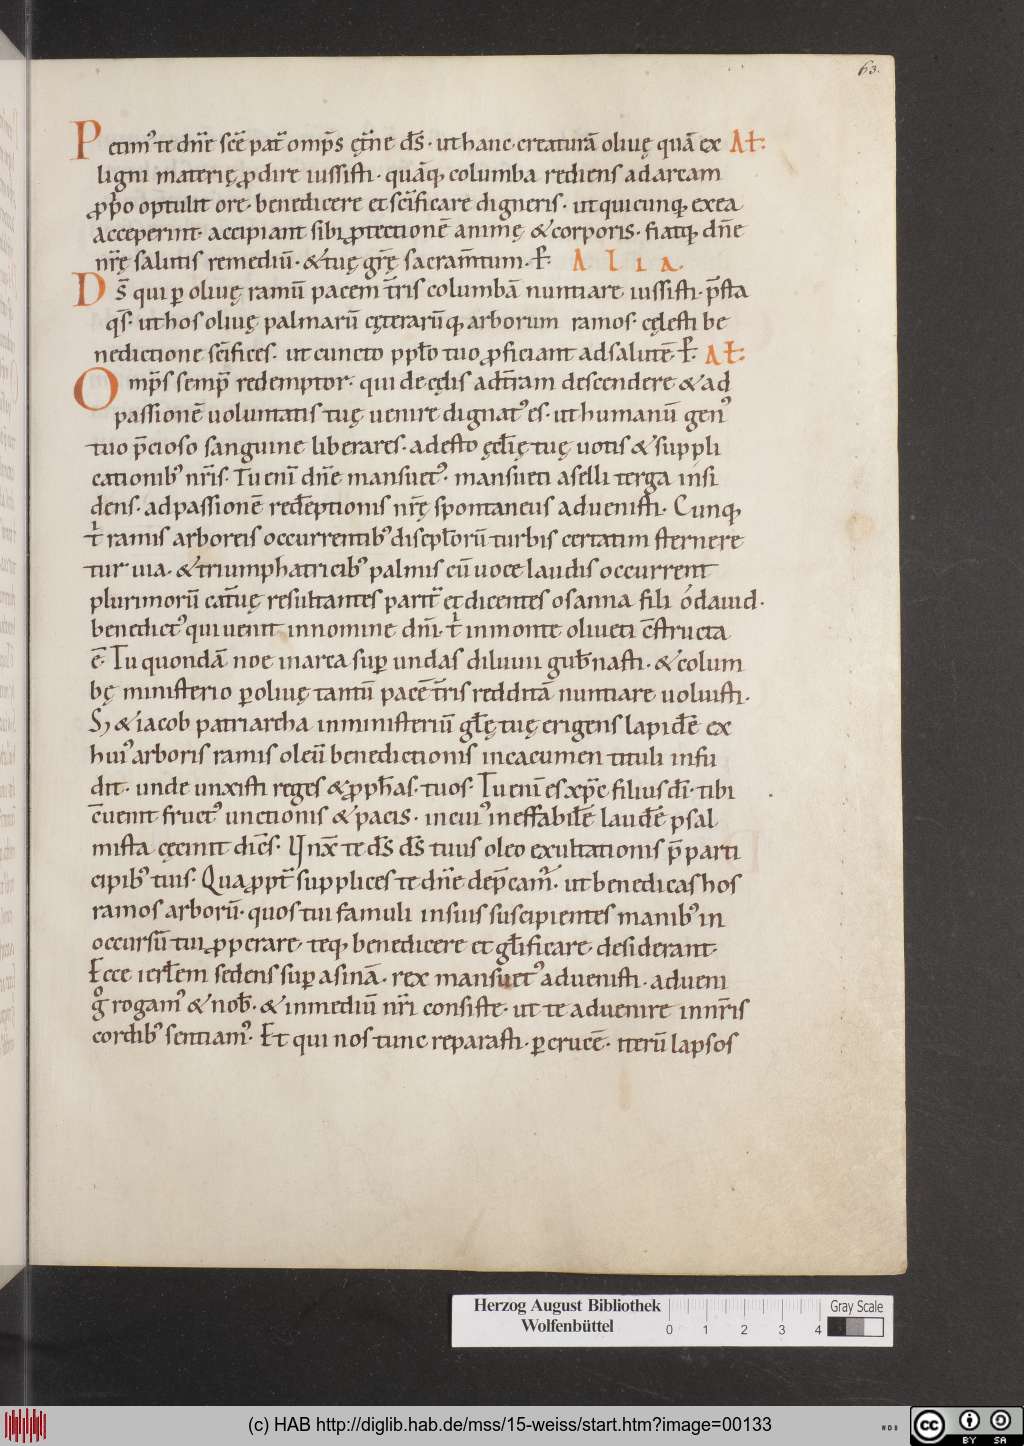 63.
Petim᾽ te dn̄e scē pat̄ omp̄s ęt̄ne ds̄· ut hanc creaturā oliuę quā ex Al̄:
ligni materię ꝓdire iussisti· quāq; columba rediens ad arcam
ꝓp̄o optulit ore· benedicere et scīficare digneris· ut quicunq; ex ea
acceperint· accipiant sibi ꝓtectionē animę & corporis· fiatq; dn̄e
nr̄ę salutis remediū· & tuę gr̄ę sacram̄tum· P̄· Alia.
Ds̄ qui ꝑ oliuę ramū pacem t̄ris columbā nuntiare iussisti· p̄sta
qs̄· ut hos oliuę palmarū cęterarūq; arborum ramos· cęlesti be
nedictione scīfices· ut cuncto pplo tuo ꝓficiant ad salutē· P̄· Al̄:
Omp̄s semp̄ redemptor· qui de cęlis ad t̄ram descendere & ad
passionē uoluntatis tuę uenire dignat᾽ es· ut humanū gen᾽
tuo p̄cioso sanguine liberares· adesto ęcl̄ię tuę uotis & suppli
cationib᾽ nr̄is· Tu enī dn̄e mansuet᾽· mansueti aselli terga insi
dens· ad passionē redēptionis nr̄ę spontaneus aduenisti· Cunq;
t̄ ramis arboreis occurrentib᾽ discipl̄orū turbis certatim sternere
tur uia· & triumphatricib᾽ palmis cū uoce laudis occurrent
plurimorū cat̄uę resultantes parit̄ et dicentes osanna fili dauid·
benedict᾽ qui uenit in nomine dn̄i· t̄ in monte oliueti c̄structa
ē· Tu quondā noe in arca suꝑ undas diluuii gub̄nasti· & colum
bę ministerio ꝑ oliuę tantū pacē t̄ris redditā nuntiare uoluisti·
S; & iacob patriarcha in ministeriū gl̄ę tuę erigens lapidē ex
hui᾽ arboris ramis oleū benedictionis in cacumen tituli infu
dit· unde unxisti reges & ꝓph̄as tuos· Tu enī es xp̄c filius dī· tibi
c̄uenit fruct᾽ unctionis & pacis· in cui᾽ ineffabilē laudē psal
mista cęcinit dicēs· Unx̄ te ds̄ ds̄ tuus oleo exultationis p̄ parti
cipib᾽ tuis· Quapropt̄ supplices te dn̄e dep̄cam᾽· ut benedicas hos
ramos arborū· quos tui famuli in suis suscipientes manib᾽ in
occursū tui ꝓperare· teq; benedicere et gl̄ificare desiderant·
Ecce ierl̄em sedens suꝑ asinā· rex mansuet᾽ aduenisti· adueni
g̊ rogam᾽ & nob̄· & in mediū nr̄i consiste· ut te aduenire in nr̄is
cordib᾽ sentiam᾽· Et qui nos tunc reparasti· ꝑ crucē· iterū lapsos
Herzog August Bibliothek
Wolfenbüttel
0 1 2 3 4
Gray Scale
(c) HAB http://diglib.hab.de/mss/15-weiss/start.htm?image=00133
WDB
cc BY SA